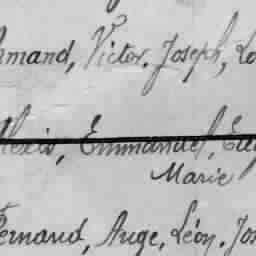 rmand, Victor, Joseph, Lo
lexis, Emmanuel, Eug
Marie
Fernand, Ange, Léon, Jos